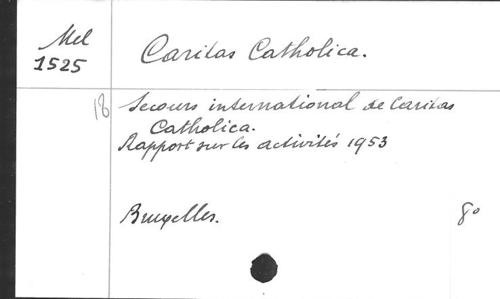 Mel
1525
Caritas Catholica.
18
Secours international de Caritas
Catholica.
Rapport sur les activités 1953
Bruxelles.
8°